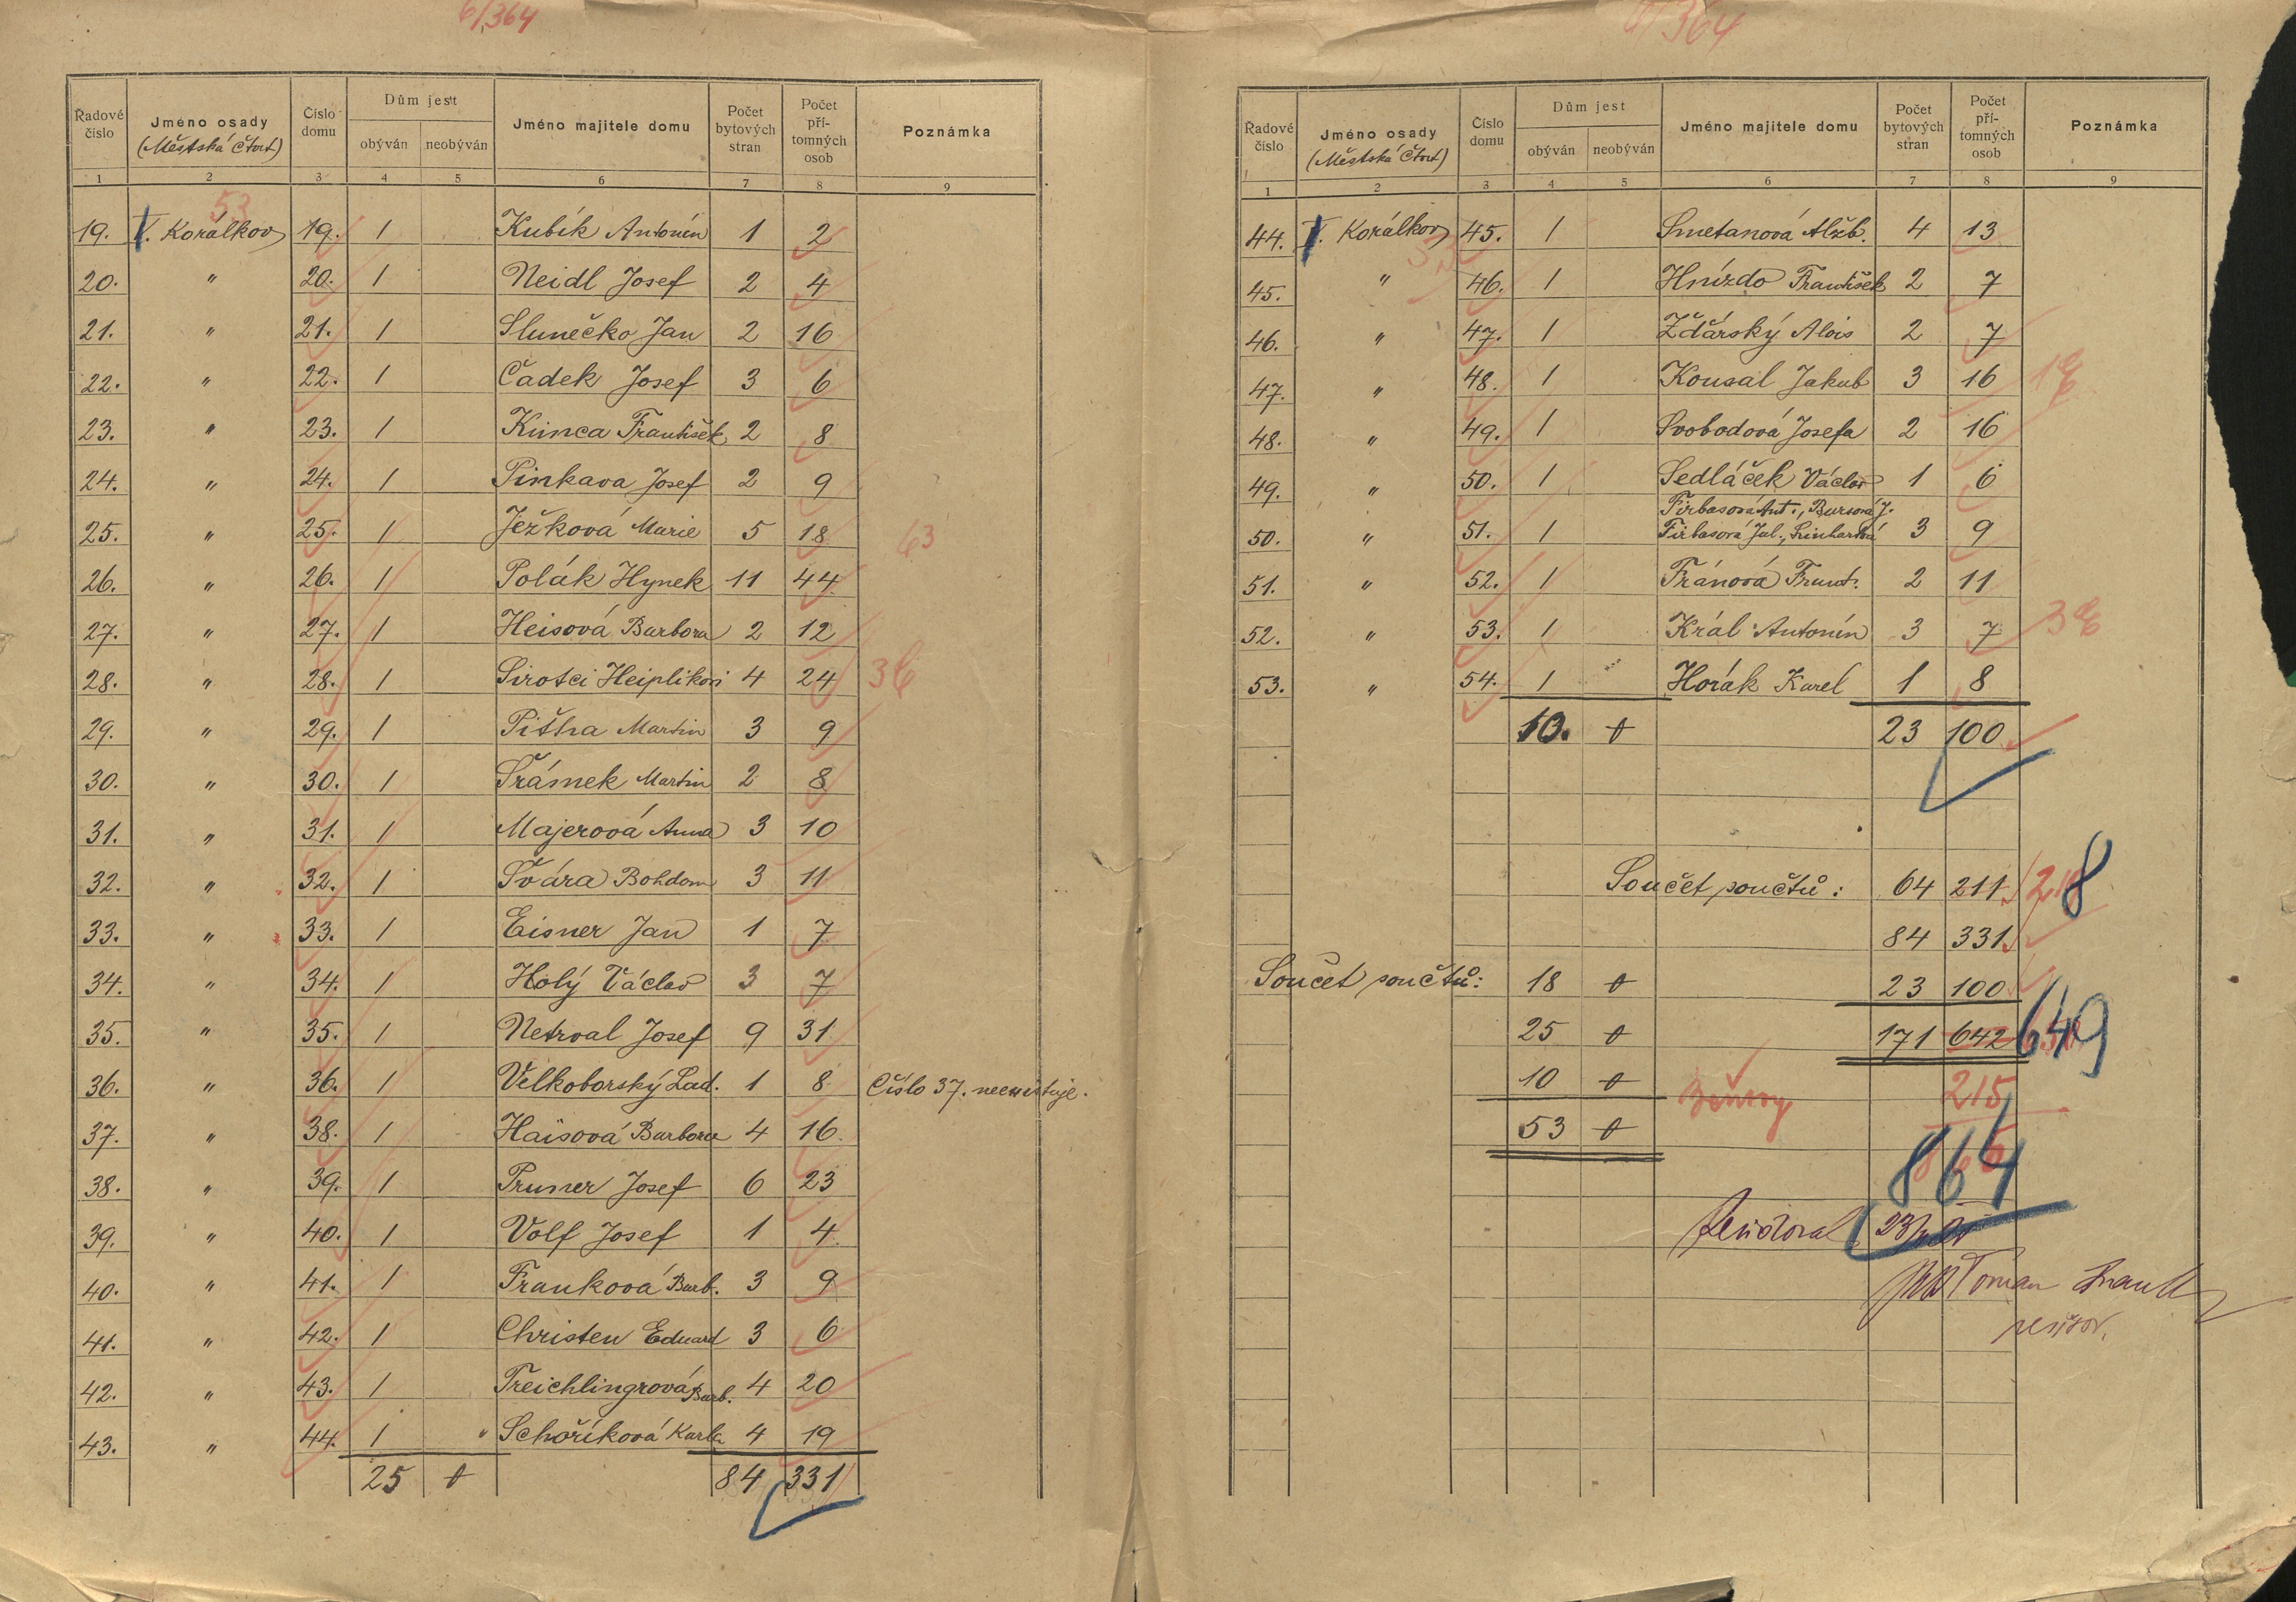 6/364
Řadové číslo | Jméno osady (Městská čtvrt) | Číslo domu | Dům jest obýván | neobýván | Jméno majitele domu | Počet bytových stran | Počet přítomných osob | Poznámka
1 | 2 | 3 | 4 | 5 | 6 | 7 | 8 | 9
53
19. | V. Korálkov | 19. | 1 | Kubík Antonín | 1 | 2
20. | " | 20. | 1 | Neidl Josef | 2 | 4
21. | " | 21. | 1 | Slunečko Jan | 2 | 16
22. | " | 22. | 1 | Čadek Josef | 3 | 6
23. | " | 23. | 1 | Kunca František | 2 | 8
24. | " | 24. | 1 | Pinkava Josef | 2 | 9
25. | " | 25. | 1 | Ježková Marie | 5 | 18 | 63
26. | " | 26. | 1 | Polák Hynek | 11 | 44
27. | " | 27. | 1 | Heisová Barbora | 2 | 12
28. | " | 28. | 1 | Sirotci Heiplikovi | 4 | 24
29. | " | 29. | 1 | Pitha Martin | 3 | 9
30. | " | 30. | 1 | Šrámek Martin | 2 | 8
31. | " | 31. | 1 | Majerová Anna | 3 | 10
32. | " | 32. | 1 | Švára Bohdan | 3 | 11
33. | " | 33. | 1 | Eisner Jan | 1 | 7
34. | " | 34. | 1 | Holý Václav | 3 | 7
35. | " | 35. | 1 | Netrval Josef | 9 | 31
36. | " | 36. | 1 | Velkoborský Lad. | 1 | 8 | Číslo 37. neexistuje.
37. | " | 38. | 1 | Haisová Barbora | 4 | 16
38. | " | 39. | 1 | Pruner Josef | 6 | 23
39. | " | 40. | 1 | Volf Josef | 1 | 4
40. | " | 41. | 1 | Franková Barb. | 3 | 9
41. | " | 42. | 1 | Christen Eduard | 3 | 6
42. | " | 43. | 1 | Treichlingrová Barb. | 4 | 20
43. | " | 44. | 1 | Schoříková Karla | 4 | 19
25 | 0 | 84 | 331
6/364
Řadové číslo | Jméno osady (Městská čtvrt) | Číslo domu | Dům jest obýván | neobýván | Jméno majitele domu | Počet bytových stran | Počet přítomných osob | Poznámka
1 | 2 | 3 | 4 | 5 | 6 | 7 | 8 | 9
44. | V. Korálkov | 45. | 1 | Smetanová Alžb. | 4 | 13
45. | " | 46. | 1 | Hnízdo František | 2 | 7
46. | " | 47. | 1 | Žďárský Alois | 2 | 7
47. | " | 48. | 1 | Kousal Jakub | 3 | 16
48. | " | 49. | 1 | Svobodová Josefa | 2 | 16
49. | " | 50. | 1 | Sedláček Václav | 1 | 6
Firbasová Ant., Bursová J.
50. | " | 51. | 1 | Firbasová Jul., Linhartová | 3 | 9
51. | " | 52. | 1 | Fránová Frant. | 2 | 11
52. | " | 53. | 1 | Král Antonín | 3 | 7
53. | " | 54. | 1 | Horák Karel | 1 | 8
10. | 0 | 23 | 100
Součet součtů: | 64 | 211 | 218
84 | 331
Součet součtů: | 18 | 0 | 23 | 100
25 | 0 | 171 | 642 | 649
10 | 0 | 215
53 | 0
864
Revidoval
Toman
revisor.